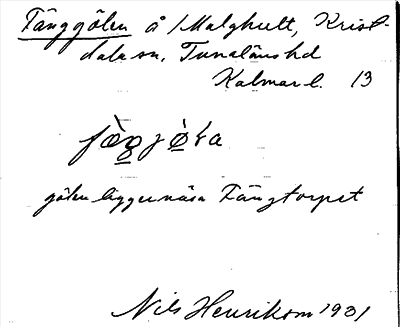 Fänggölen å /Malghult, Krist-
dala sn, Tunaläns hd
Kalmar l. 13
gölen ligger nära Fängtorpet
Nils Henrikson 1901